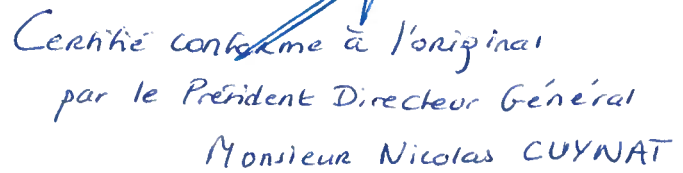 Certifié conforme à l'original
par le Président Directeur Général
Monsieur Nicolas CUYNAT